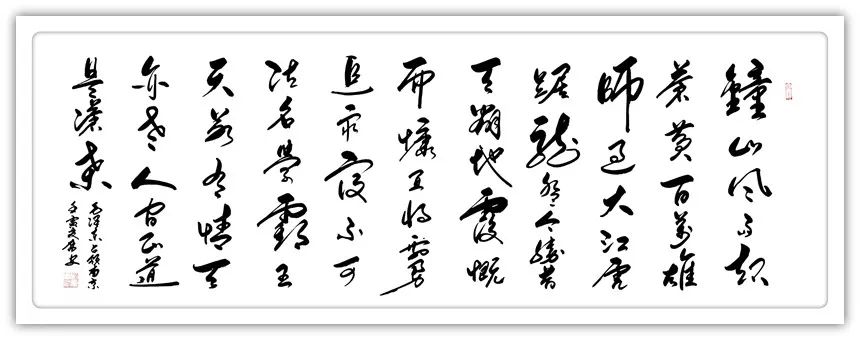 鐘山風雨起
蒼黃百萬雄
師過大江虎
踞龍盤今勝昔
天翻地覆慨
而慷宜將剩勇
追窮寇不可
沽名學霸王
天若有情天
亦老人間正道
是滄桑
毛澤東占領南京
壬寅